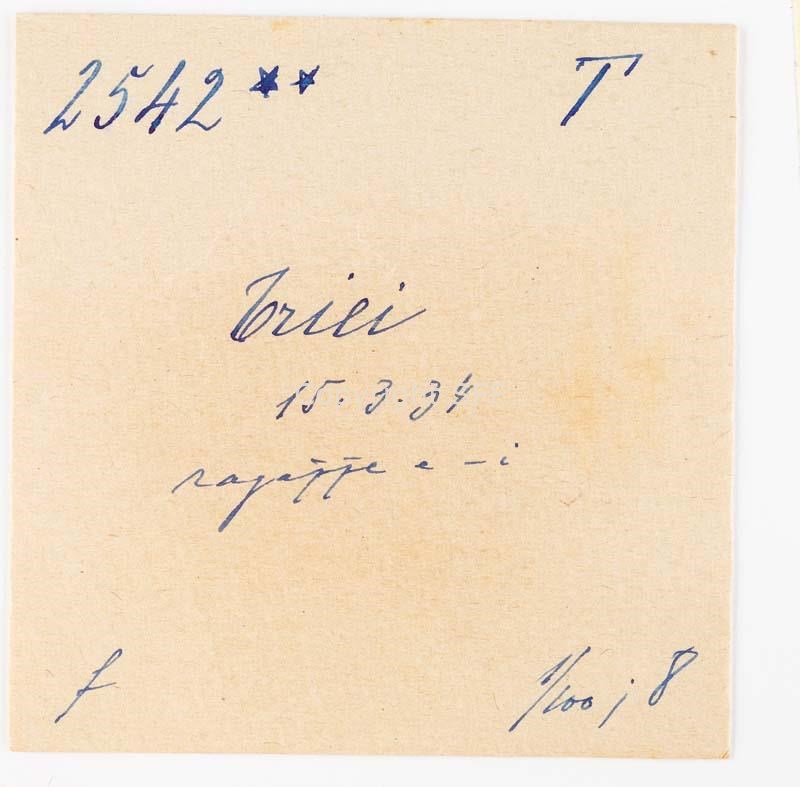 2542** T
Erili
15.3.34
ragazze e -i
f 1/100; 8